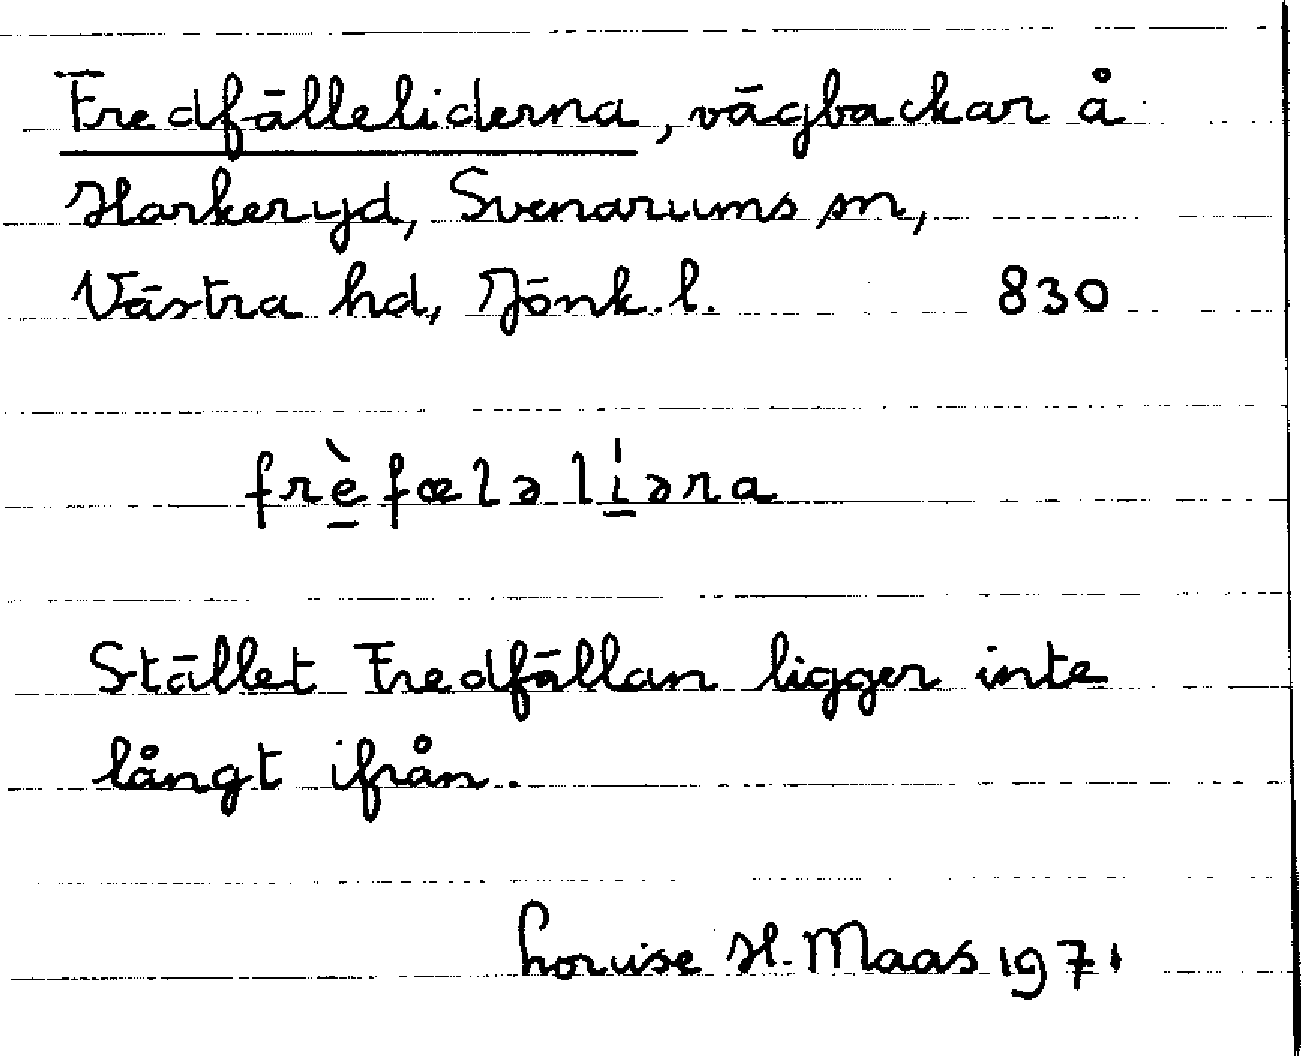 Fredfälleliderna, vägbackar å
Harkeryd, Svenarums sn,
Västra hd, Jönk. l. 830
frèfæləlíərna
Stället Fredfällan ligger inte
långt ifrån.
Louise H. Maas 1971